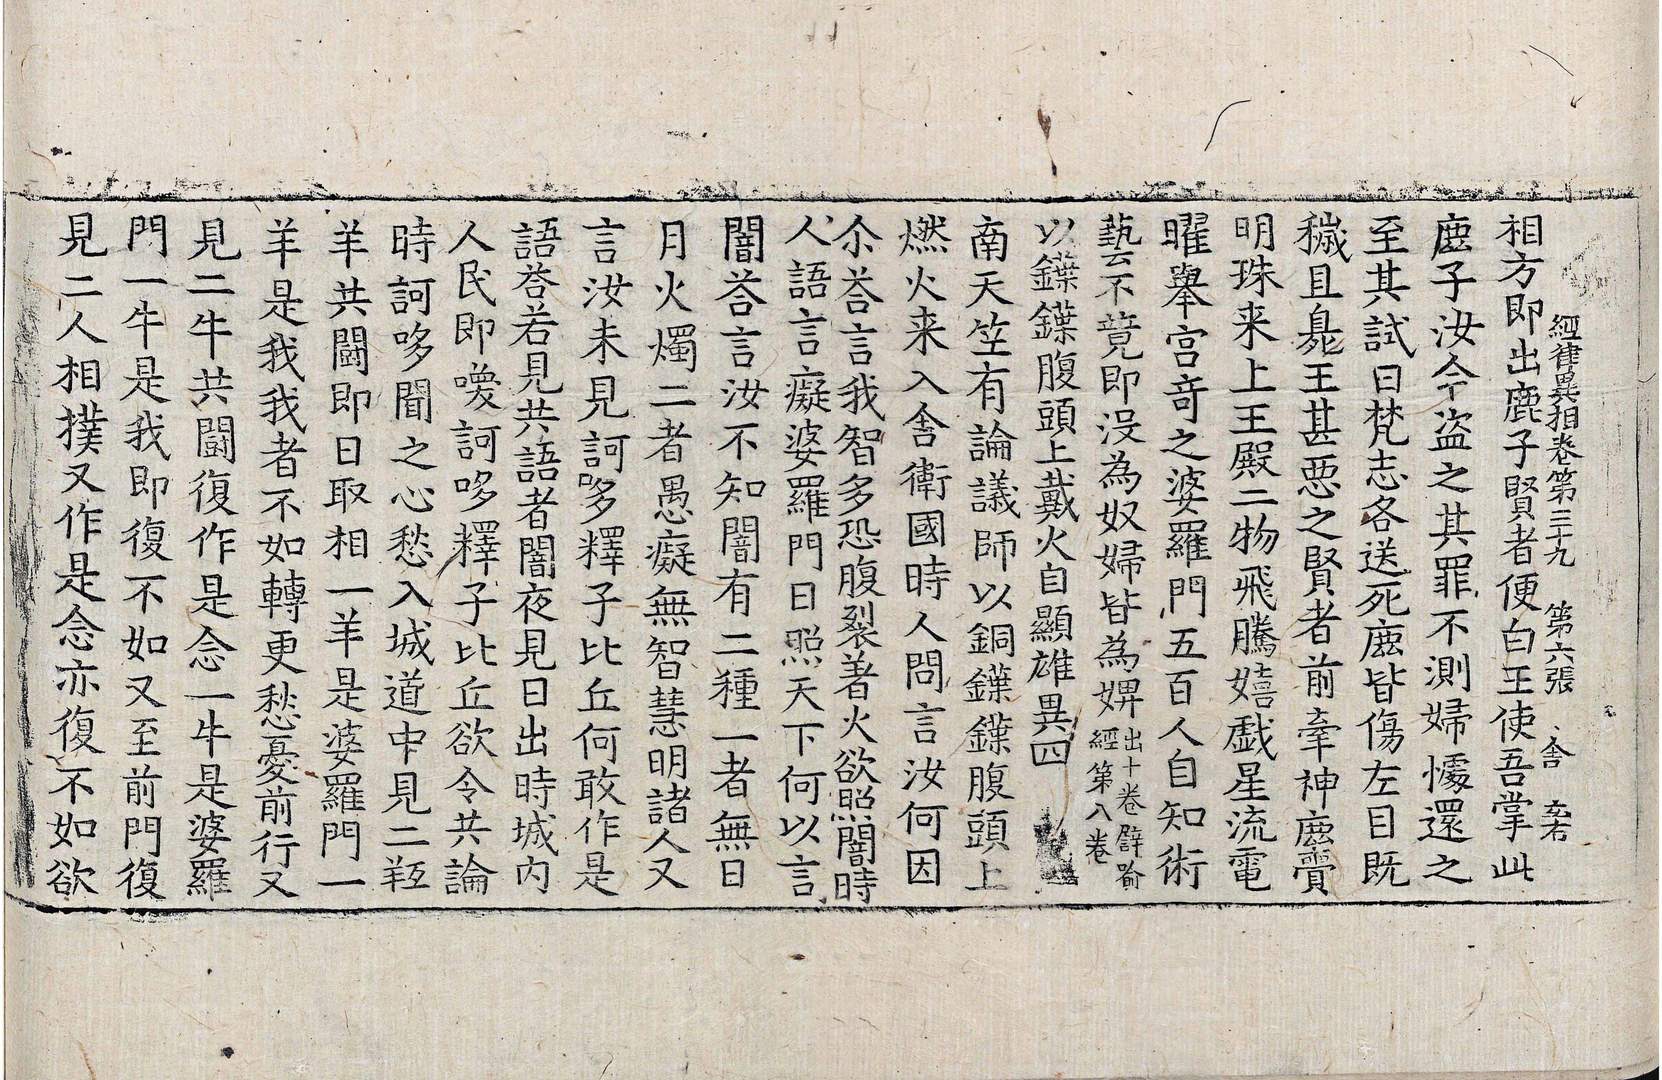 經律異相卷第三十九　第六張　舍　安
相方即出鹿子賢者便白王使吾掌此
鹿子汝今盜之其罪不測婦懅還之
至其試日梵志各送死鹿皆傷左目既
穢且臭王甚惡之賢者前牽神鹿賣
明珠来上王殿二物飛騰嬉戲星流電
曜舉宮奇之婆羅門五百人自知術
藝不竟即沒為奴婦皆為婢出十卷譬喻經第八卷
以鍱鍱腹頭上戴火自顯雄異四
南天竺有論議師以銅鍱鍱腹頭上
燃火来入舍衛國時人問言汝何因
尒荅言我智多恐腹裂著火欲照闇時
人語言癡婆羅門日照天下何以言
闇荅言汝不知闇有二種一者無日
月火燭二者愚癡無智慧明諸人又
言汝未見訶哆釋子比丘何敢作是
語荅若見共語者闇夜見日出時城內
人民即喚訶哆釋子比丘欲令共論
時訶哆聞之心愁入城道中見二羝
羊共鬪即日取相一羊是婆羅門一
羊是我我者不如轉更愁憂前行又
見二牛共鬪復作是念一牛是婆羅
門一牛是我即復不如又至前門復
見二人相撲又作是念亦復不如欲